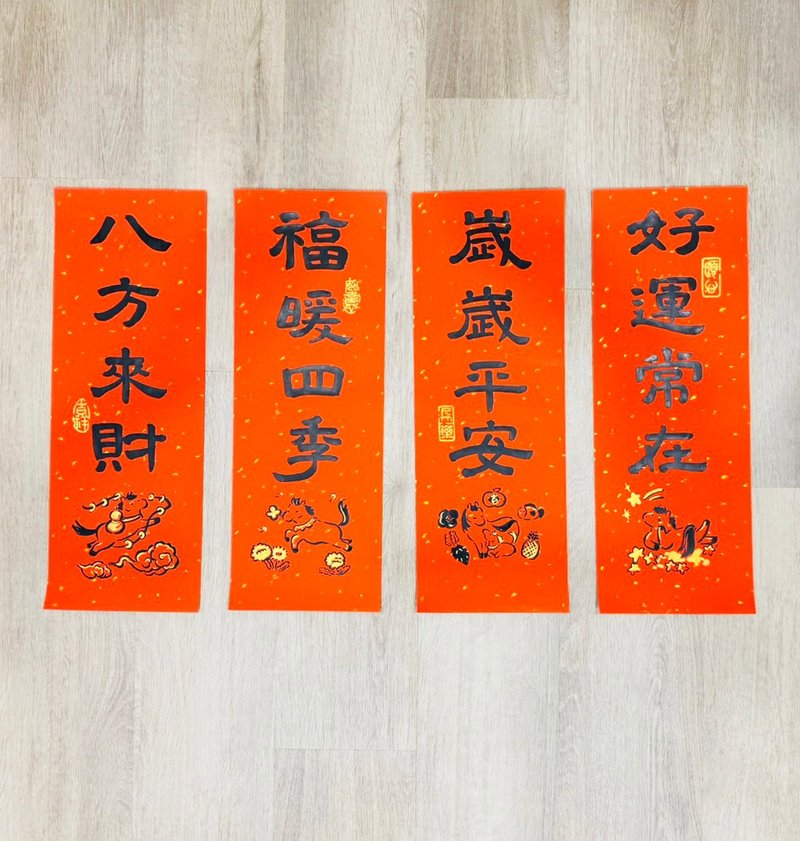 好運常在
歲歲平安
福暖四季
八方來財